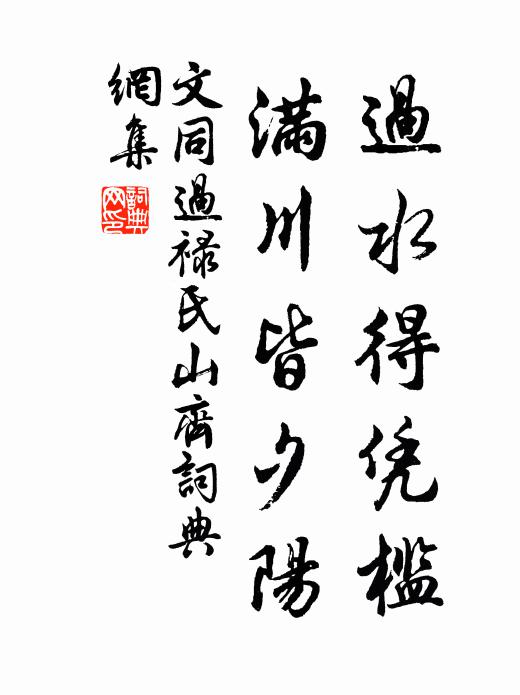 過水得凭檻
滿川皆夕陽
文同過祿氏山齋詞典
網集
詞典網印